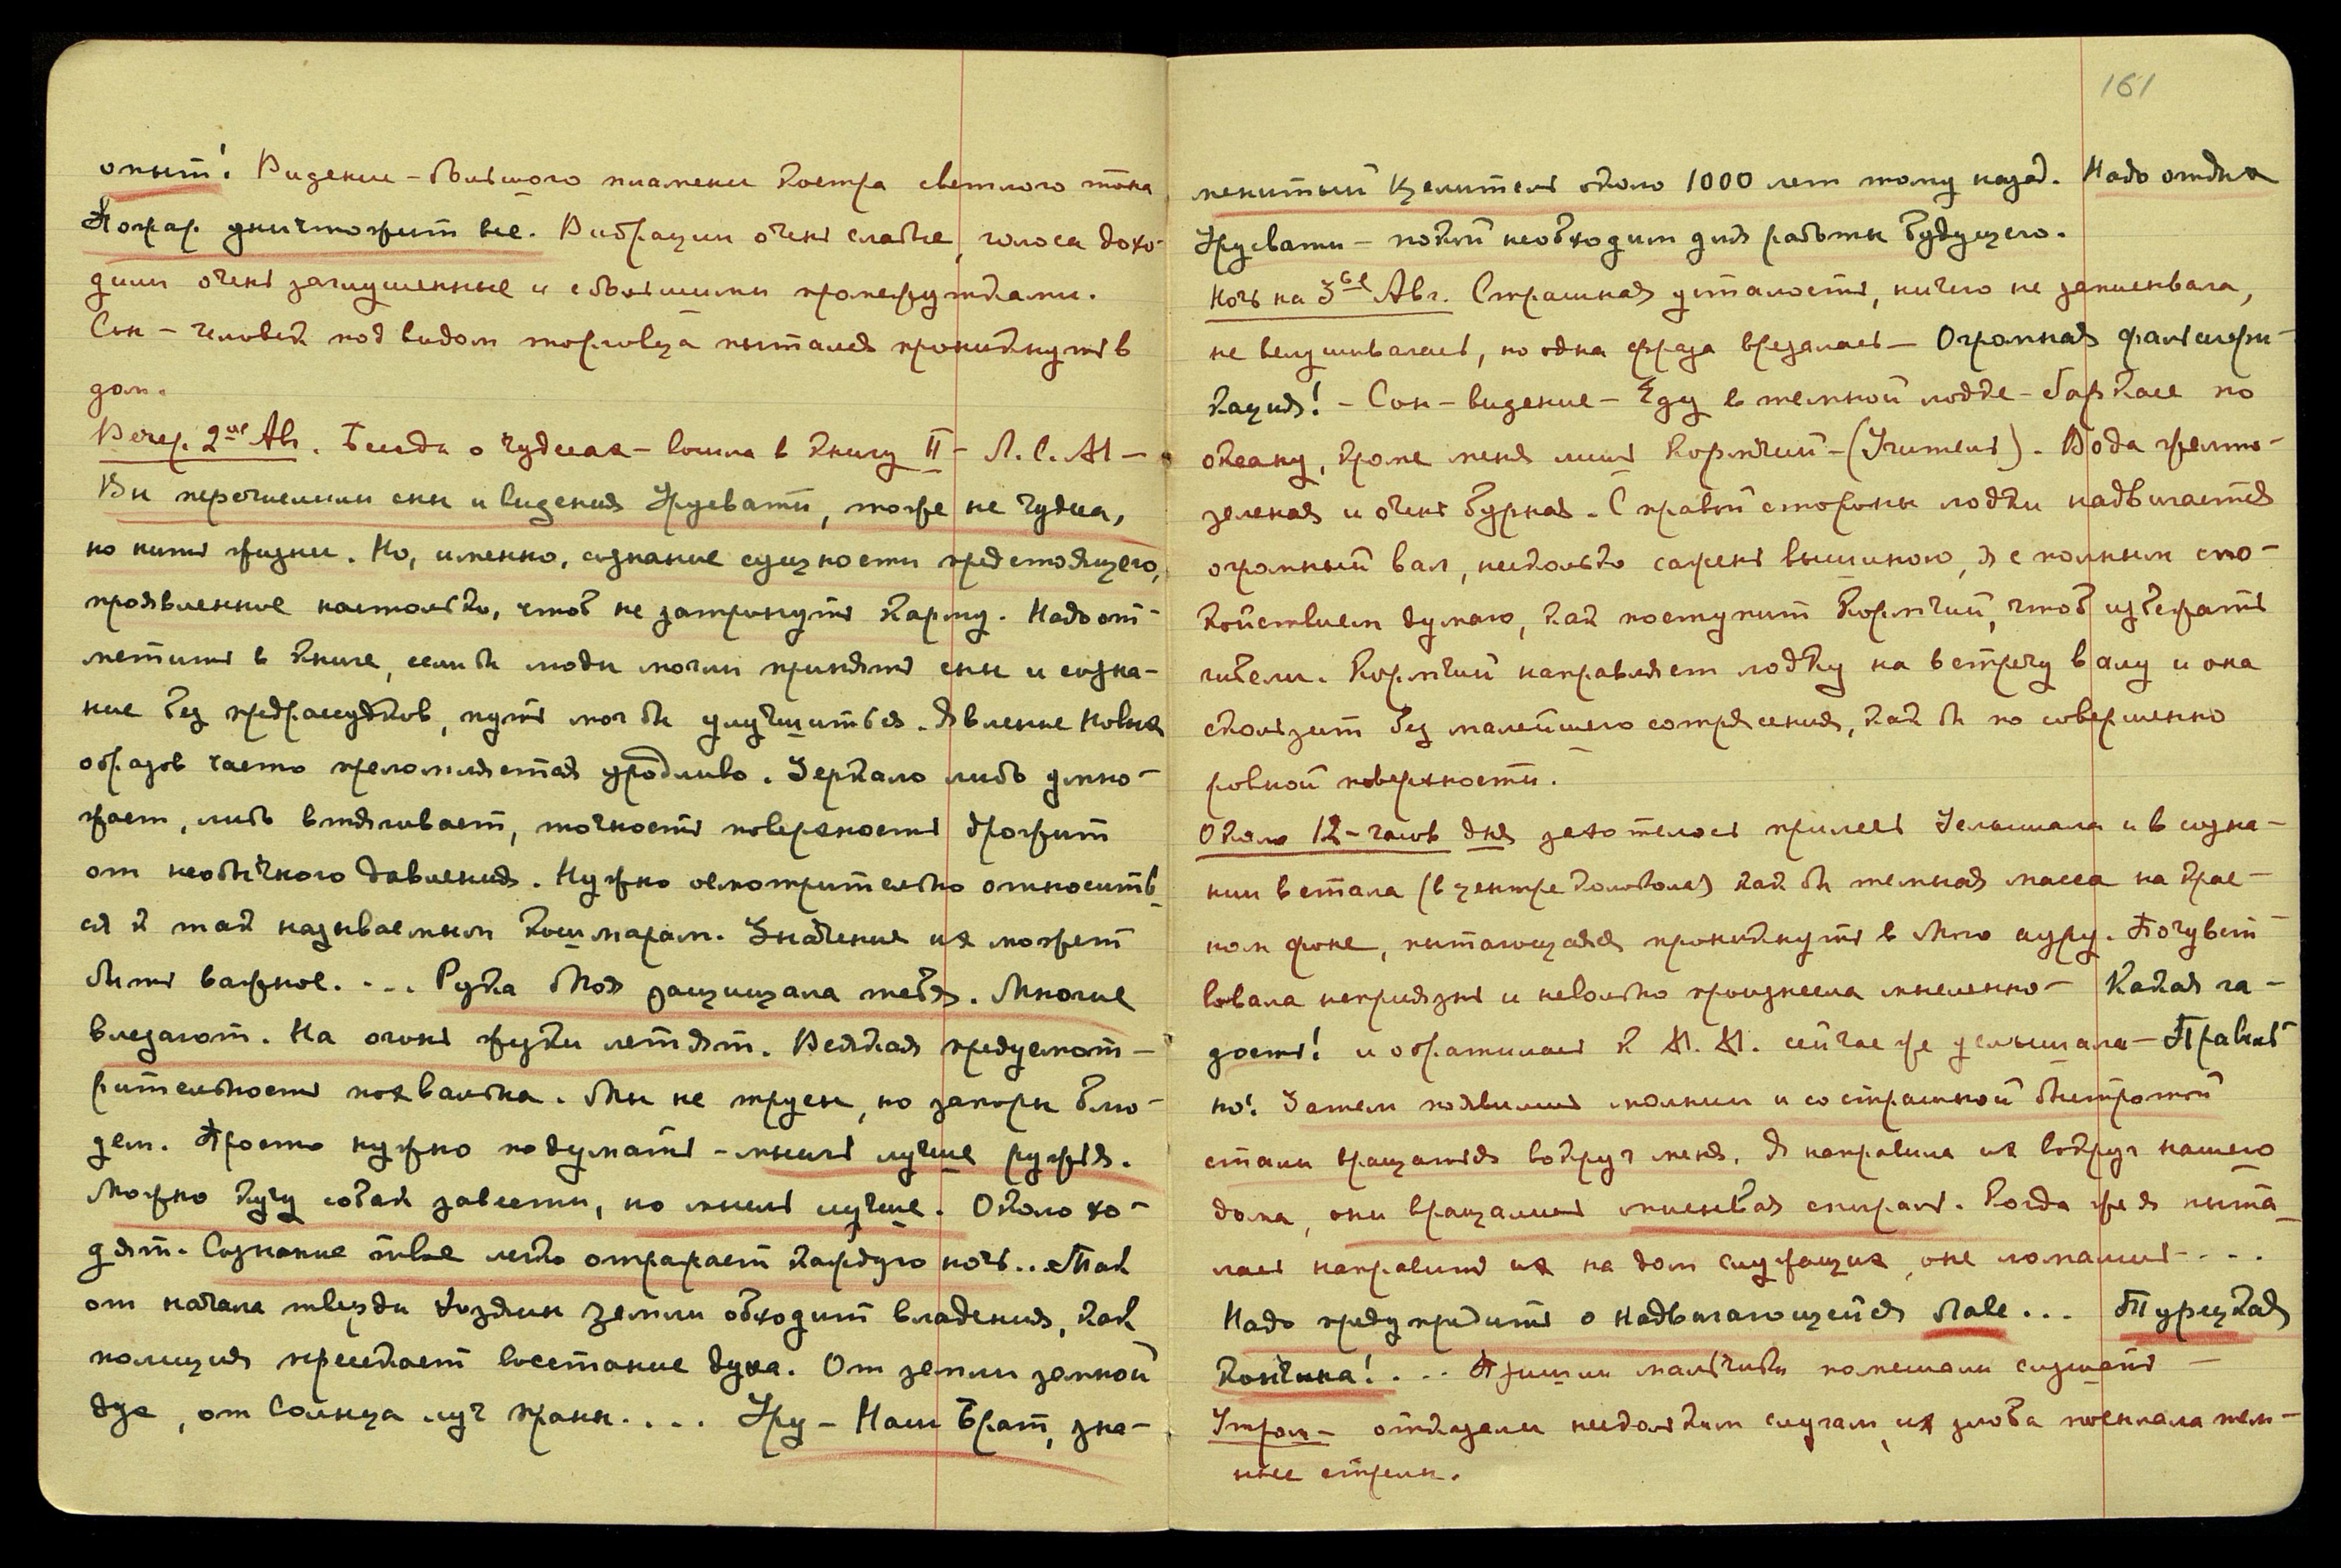 опыт! Видение – большого пламени костра светлого тона
Пожар уничтожит все. Вибрации очень слабые, голоса дохо-
дили очень заглушенные и с большими промежутками.
Сон – человек под видом торговца пытался проникнуть в
дом.
Вечер. 2ое Авг. Беседа о чудесах – вошла в книгу II – Л. С. М –
Вы перечислили сны и видения Урусвати, тоже не чудеса,
но нити жизни. Но, именно, сознание сущности предстоящего,
проявленное настолько, чтоб не затронуть карму. Надо от-
метить в книге, если бы люди могли принять сны и созна-
ние без предрассудков, путь мог бы улучшиться. Явление новых
образов часто преломляется уродливо. Зеркало либо умно-
жает, либо втягивает, точность поверхности дрожит
от необычного давления. Нужно осмотрительно относить-
ся к так называемым кошмарам. Значение их может
быть важное. ... Рука Моя защищала тебя. Многие
влезают. На огонь жуки летят. Всякая предусмот-
рительность похвальна. Мы не трусы, но запоры блю-
дем. Просто нужно подумать – мысль лучше ружья.
Можно кучу собак завести, но мысль лучше. Около хо-
дят. Сознание твое легко отражает каждую ночь... Так
от начала твезды хозяин земли обходит владения, как
полиция пресекает восстание духа. От земли земной
дух, от Солнца луч праны. ... Уру – Наш Брат, зна-
161
менитый целитель около 1000 лет тому назад. Надо отдых
Урусвати – покой необходим для работы будущего.
Ночь на 3ье Авг. Страшная усталость, ничего не записывала,
не вслушивалась, но одна фраза врезалась – Огромная фальсифи-
кация! – Сон – видение – Еду в темной лодке – баркасе по
океану, кроме меня лишь Кормчий – (Учитель). Вода желто-
зеленая и очень бурная. С правой стороны лодки надвигается
огромный вал, несколько сажень вышиною, я с полным спо-
койствием думаю, как поступит Кормчий, чтоб избежать
гибели. Кормчий направляет лодку на встречу валу и она
скользит без малейшего сотрясения, как бы по совершенно
ровной поверхности.
Около 12-часов дня захотелось прилечь Услышала и в созна-
нии встала (в центре колокола) как бы темная масса на крас-
ном фоне, пытающаяся проникнуть в мою ауру. Почувст-
вовала неприязнь и невольно произнесла мысленно – Какая га-
дость! и обратилась к М. М. сейчас же услышала – Правиль-
но! Затем появились молнии и со страшной быстротой
стали вращаться вокруг меня. Я направила их вокруг нашего
дома, они вращались описывая спираль. Когда же я пыта-
лась направить их на дом служащих, оне ломались – ...
Надо предупредить о надвигающейся Лаве ... Турецкая
кончина! ... Пришли мальчики помешали слушать –
Утром – отказали нескольким слугам, их злоба посылала тем-
ные стрелы.